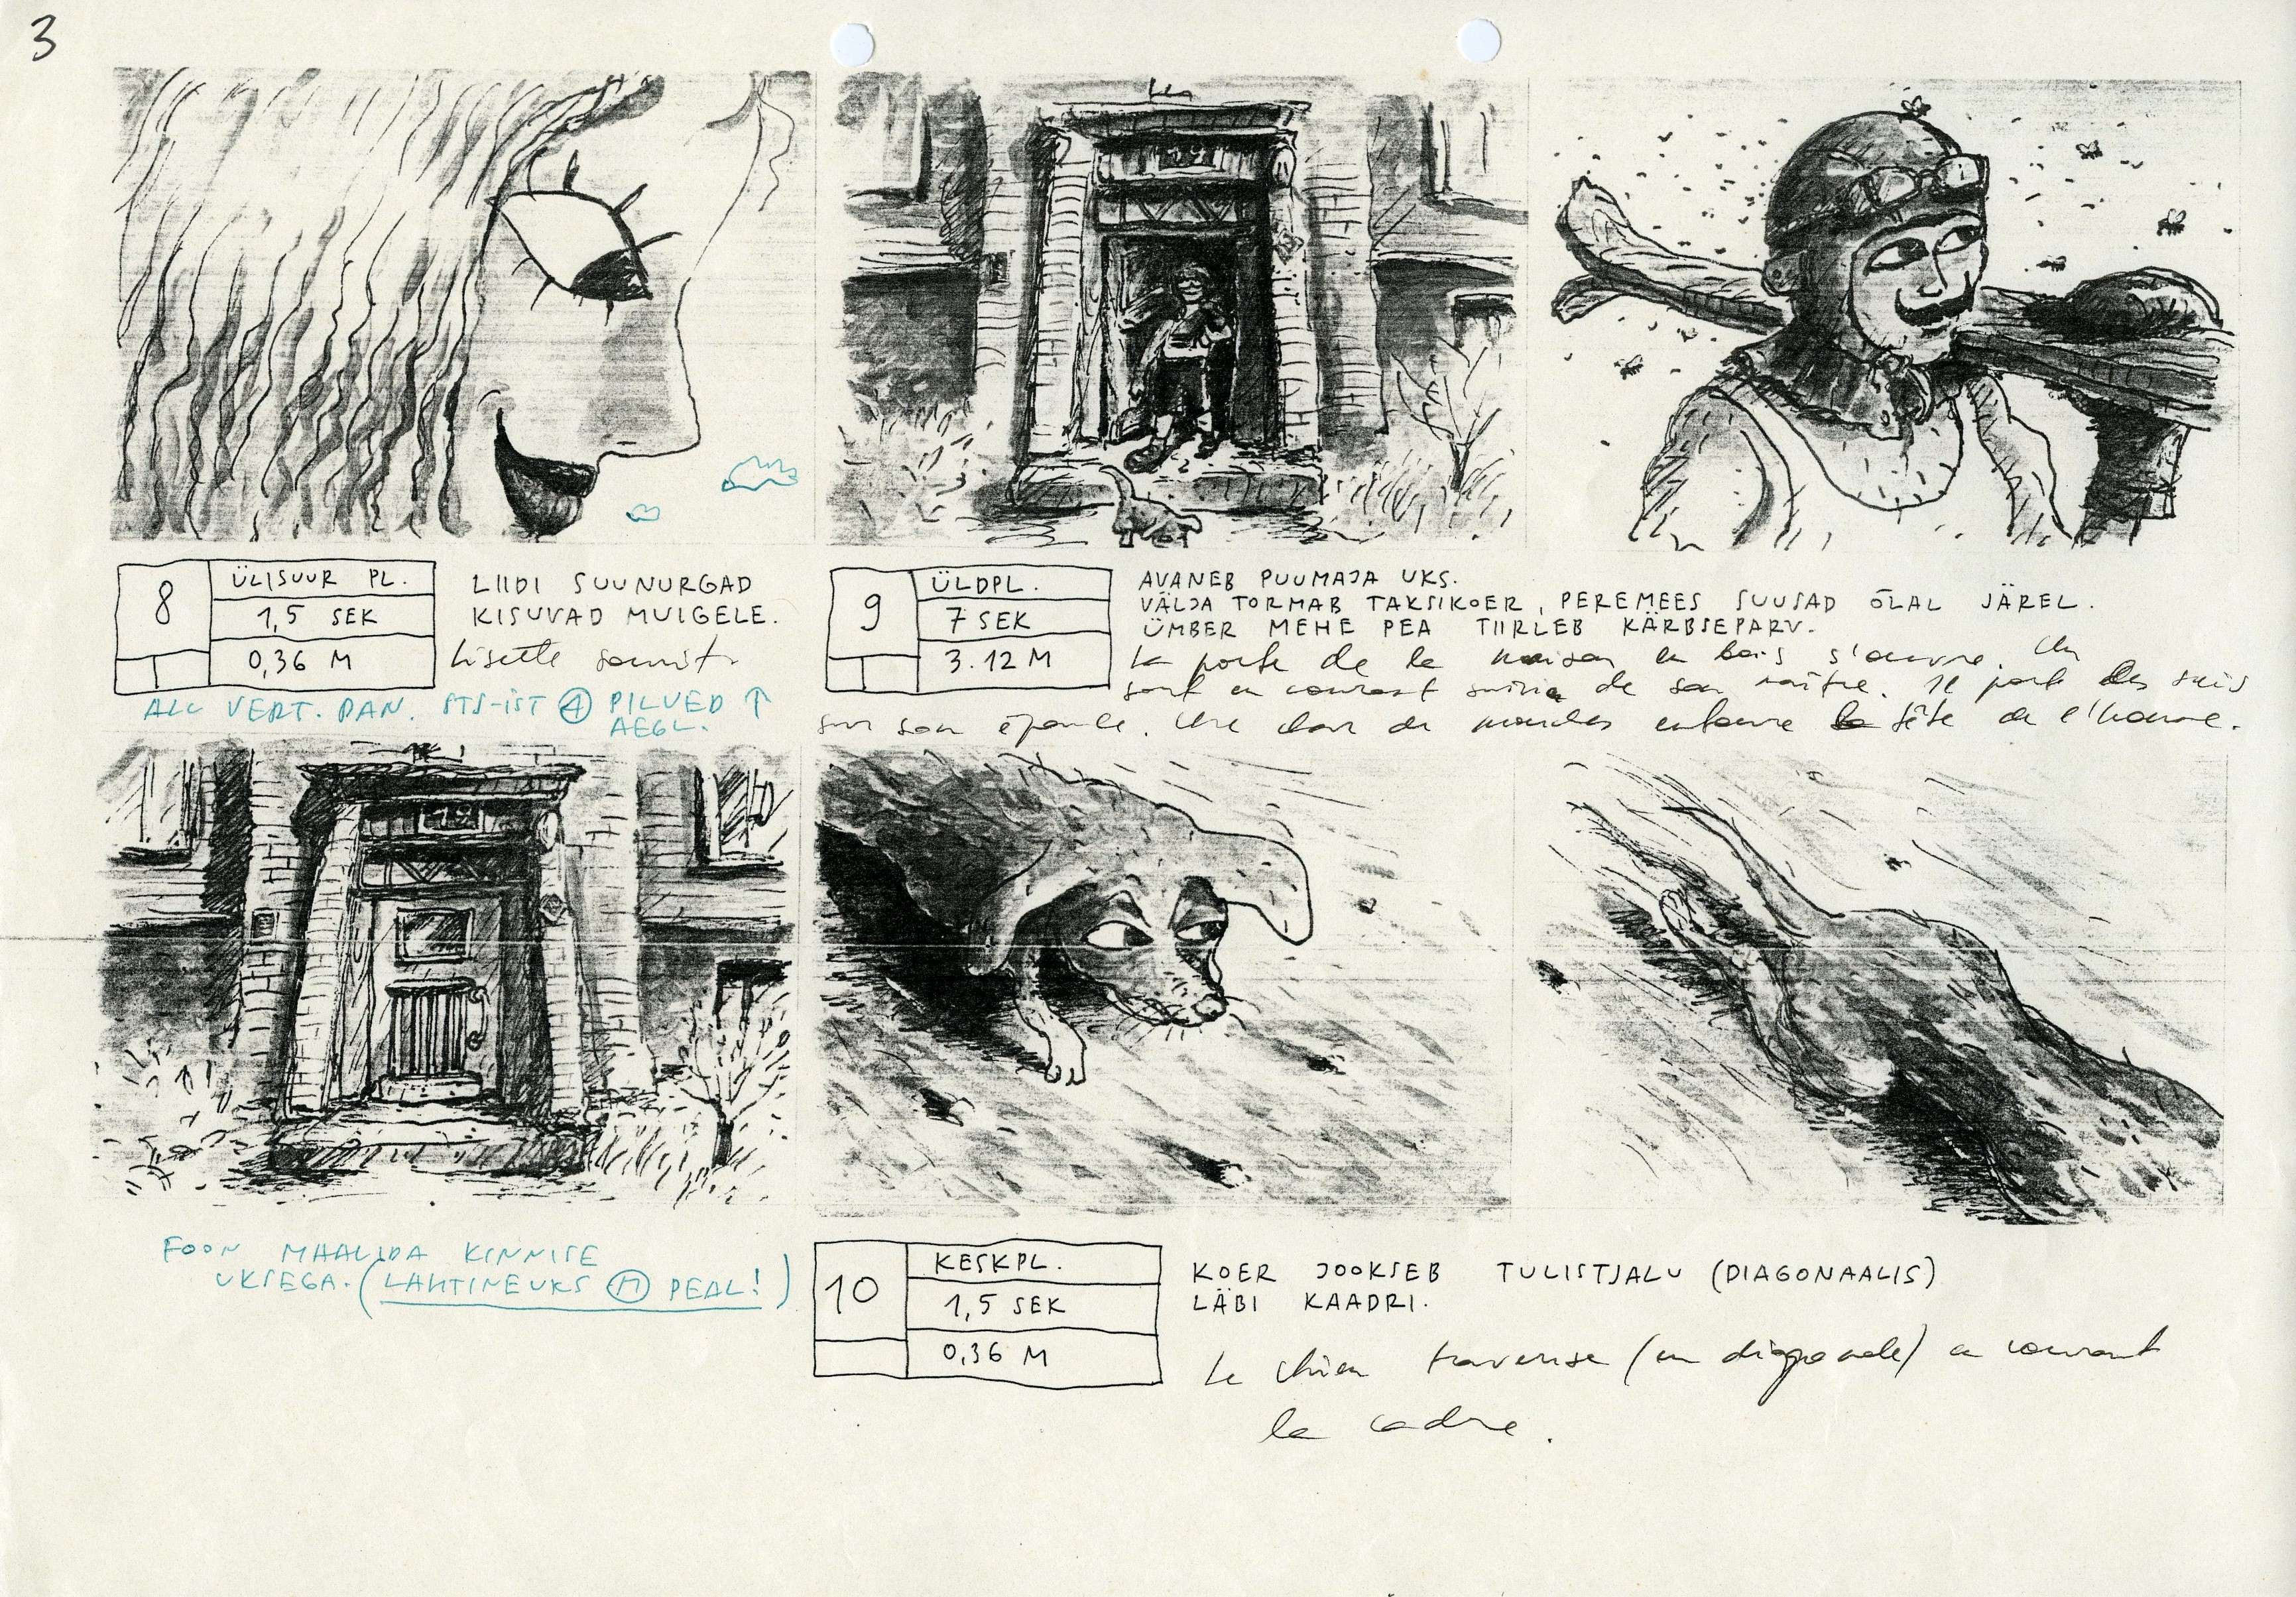 3
8
ÜLISUUR PL.
1,5 SEK
0,36 M
LIIDI SUUNURGAD
KISUVAD MUIGELE.
Lisette sourit
ALL VERT. PAN. STS-IST A PILVED ↑
AEGL.
19
9
ÜLDPL.
7 SEK
3.12 M
AVANEB PUUMAJA UKS.
VÄLJA TORMAB TAKSIKOER, PEREMEES SUUSAD ÕLAL JÄREL.
ÜMBER MEHE PEA TIIRLEB KÄRBSEPARV.
La porte de la maison en bois s'ouvre. Un
sort en courant suivi de son maître. Il porte des skis
sur son épaule. Une de mouches entoure la tête de l'homme.
19
FOON MAALIDA KINNISE
UKSEGA. (LAHTINE UKS M PEAL!)
10
KESKPL.
1,5 SEK
0,36 M
KOER JOOKSEB TULISTJALU (DIAGONAALIS)
LÄBI KAADRI.
Le chien traverse (en diagonale) en courant
le cadre.